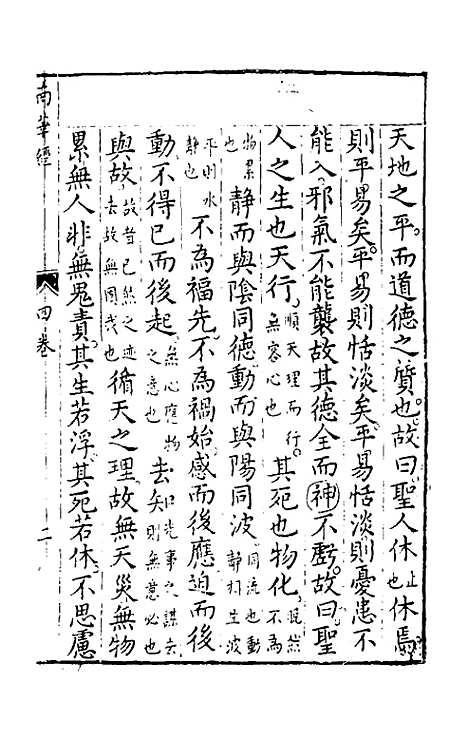 天地之平而道德之質也故曰聖人休止也休焉
則平易矣平易則恬淡矣平易恬淡則憂患不
能入邪氣不能襲故其德全而神不虧故曰聖
人之生也天行順天理而行無容心也其死也物化然不為
物累也靜而與陰同德動而與陽同波同流也動靜相生波
平則水靜也不為福先不為禍始感而後應迫而後
動不得已而後起無心應物之意也去知先事之謀去則無意必也
與故故者已然之迹去故無固我也循天之理故無天災無物
累無人非無鬼責其生若浮其死若休不思慮
南華經
四卷
二